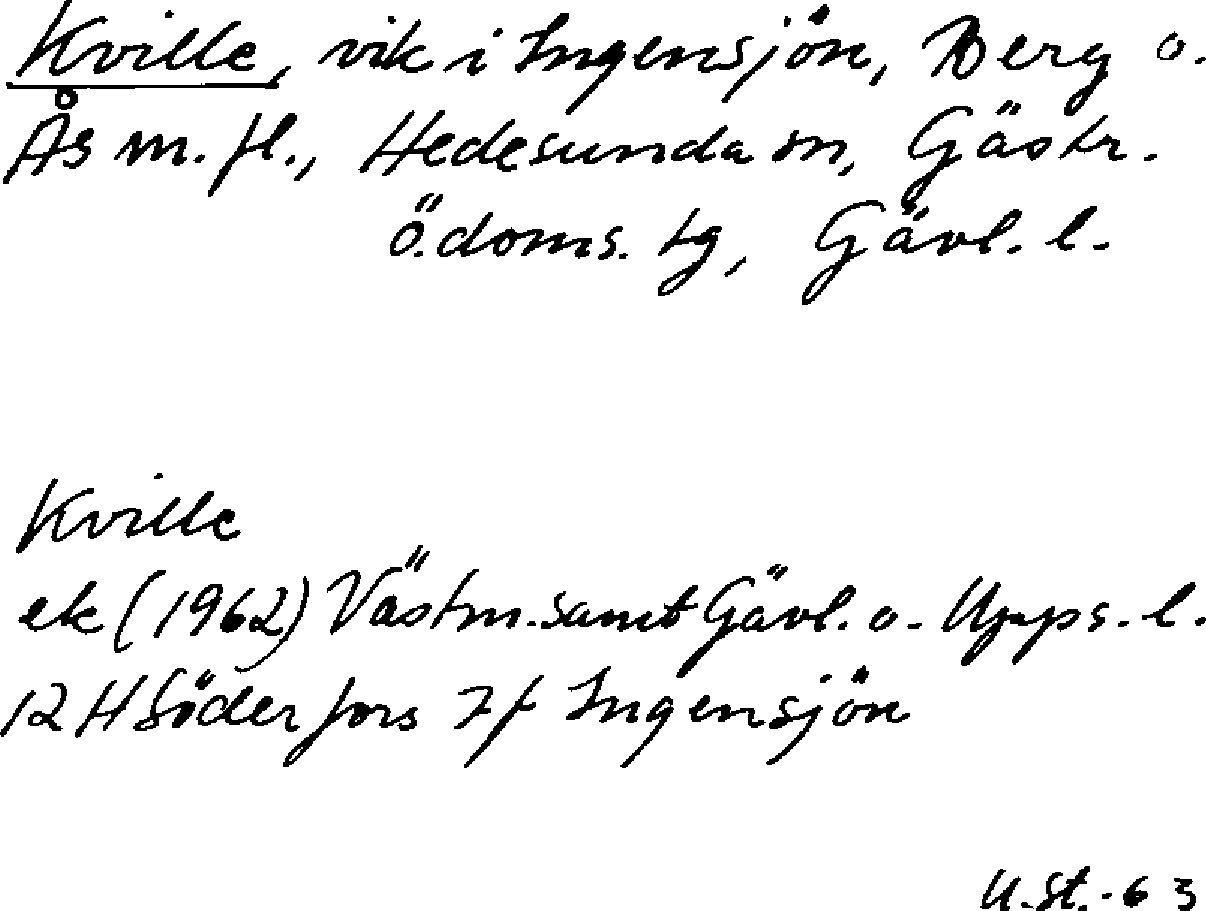 Kville, vik i Ingensjön, Berg o.
Ås m. fl., Hedesunda sn, Gästr.
ö.doms. tg, Gävl. l.
Kville
ek (1962) Västm. samt Gävl. o. Upps. l.
12 H Söderfors 7f Ingensjön
U.St.-63